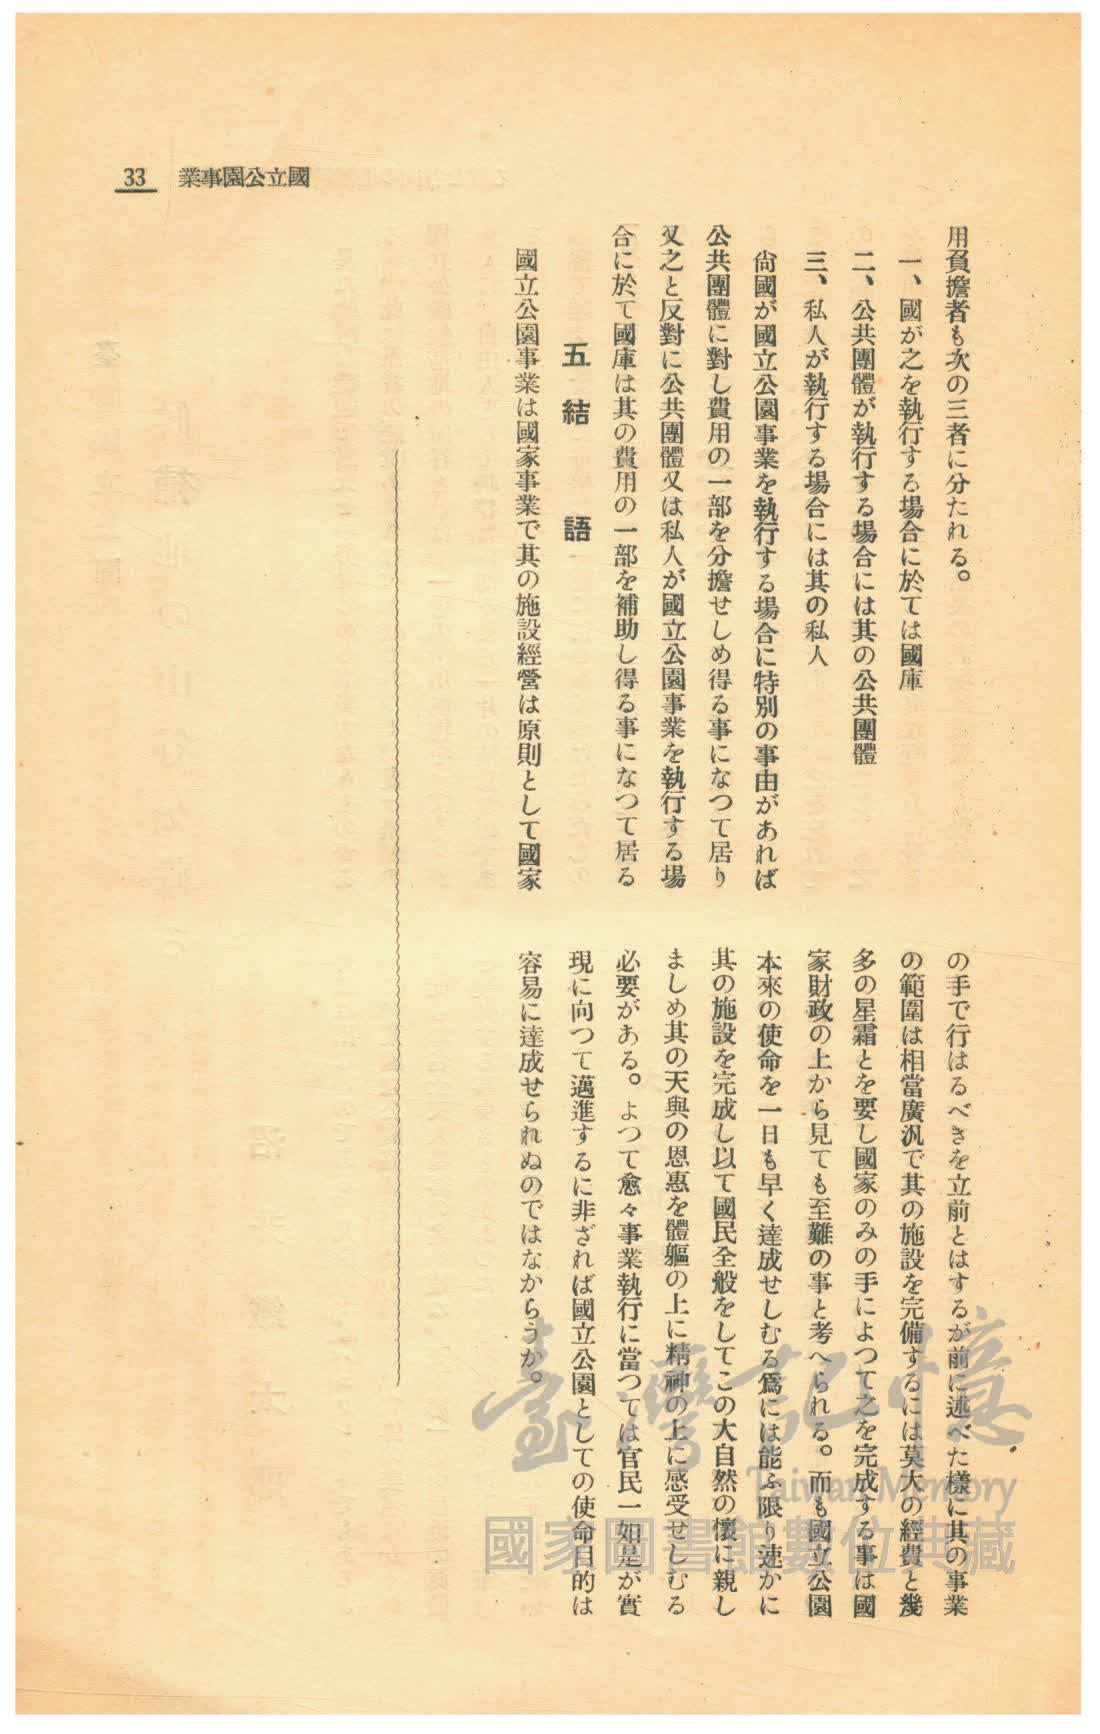 33
業事園公立國
用負擔者も次の三者に分たれる。
一、國が之を執行する場合に於ては國庫
二、公共團體が執行する場合には其の公共團體
三、私人が執行する場合には其の私人
尙國が國立公園事業を執行する場合に特別の事由があれば
公共團體に對し費用の一部を分擔せしめ得る事になつて居り
又之と反對に公共團體又は私人が國立公園事業を執行する場
合に於て國庫は其の費用の一部を補助し得る事になつて居る
五 結 語
國立公園事業は國家事業で其の施設經營は原則として國家
の手で行はるべきを立前とはするが前に述べた樣に其の事業
の範圍は相當廣汎で其の施設を完備するには莫大の經費と幾
多の星霜とを要し國家のみの手によつて之を完成する事は國
家財政の上から見ても至難の事と考へられる。而も國立公園
本來の使命を一日も早く達成せしむる爲には能ふ限り速かに
其の施設を完成し以て國民全般をしてこの大自然の懷に親し
ましめ其の天與の恩惠を體軀の上に精神の上に感受せしむる
必要がある。よつて愈々事業執行に當つては官民一如是が實
現に向つて邁進するに非ざれば國立公園としての使命目的は
容易に達成せられぬのではなからうか。
臺灣記憶
Taiwan Memory
國家圖書館數位典藏